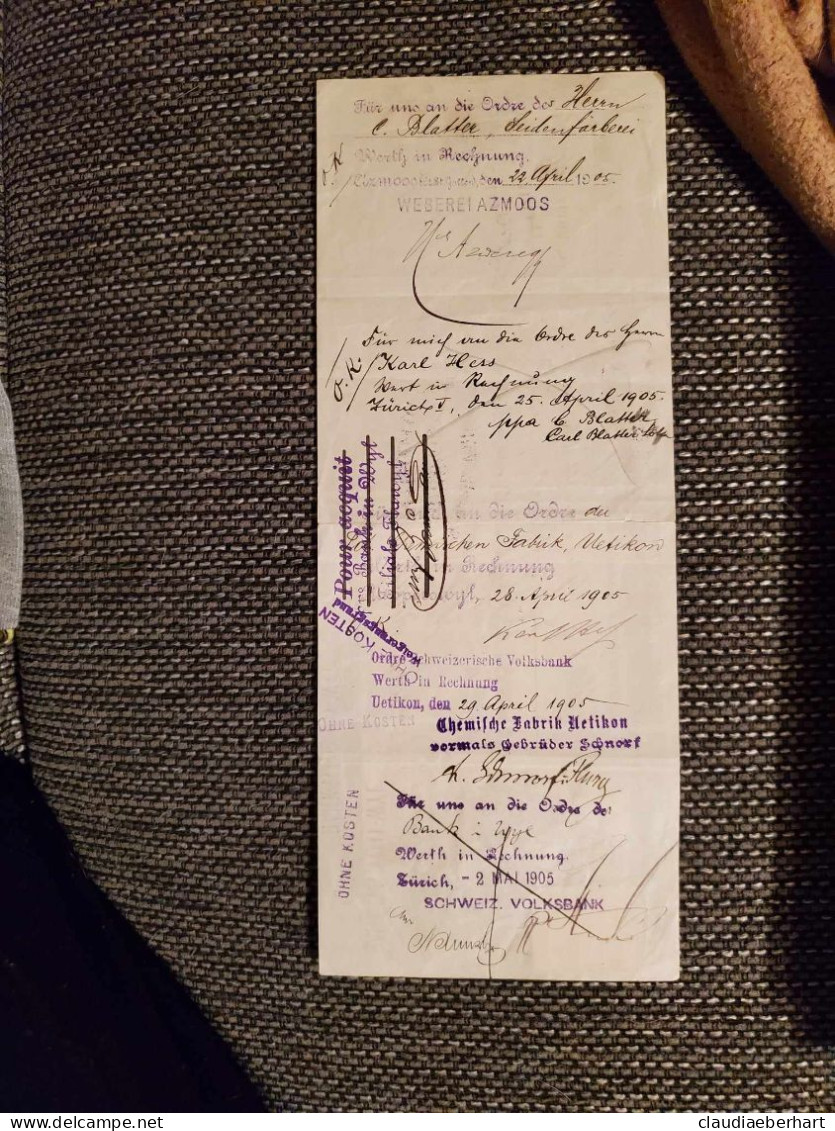 Für uns an die Ordre des Herrn
C. Blatter, Seidenfärberei
Werth in Rechnung.
O.K.
Azmoos den 22. April 1905.
WEBEREI AZMOOS
Für mich an die Ordre des Herrn
O.K.
Karl Hess
Wert in Rechnung
Zürich V, den 25. April 1905.
ppa C. Blatter
Carl Blatter
Pour acquit
Bank in Wyl
Filiale Flawyl
an die Ordre der
chemischen Fabrik, Uetikon
in Rechnung
28. April 1905
K.
OHNE KOSTEN
Ordre Schweizerische Volksbank
Werth in Rechnung
Uetikon, den 29. April 1905
OHNE KOSTEN
Chemische Fabrik Uetikon
vormals Gebrüder Schnorf
OHNE KOSTEN
Für uns an die Ordre der
Bank i Wyl
Werth in Rechnung.
Zürich, - 2 MAI 1905
SCHWEIZ. VOLKSBANK
claudiaeberhart | Delcampe.net